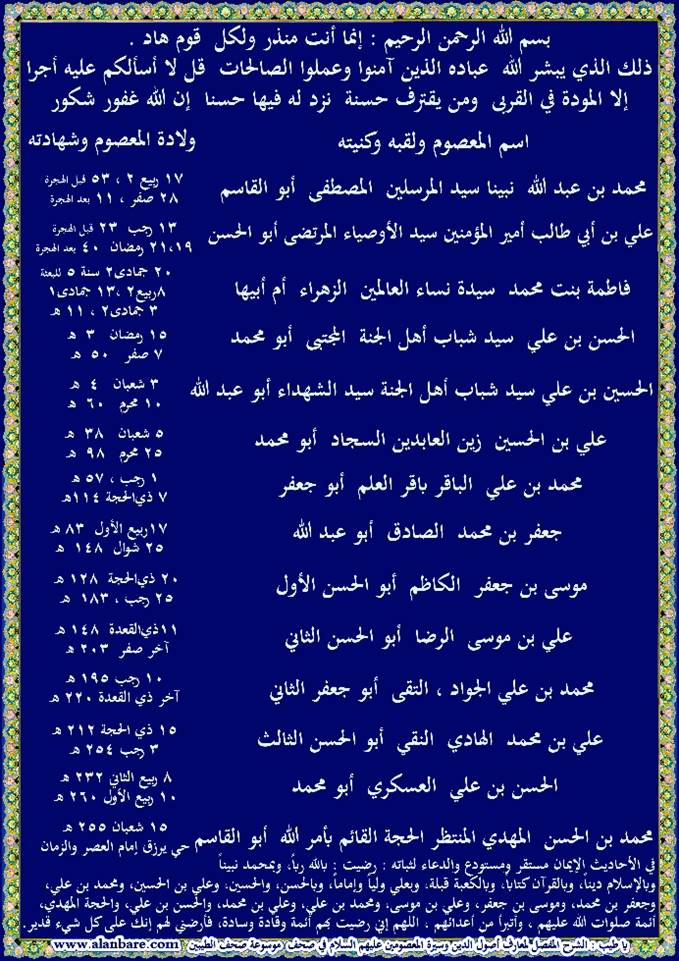 بسم الله الرحمن الرحيم : إنما أنت منذر ولكل قوم هاد .
ذلك الذي يبشر الله عباده الذين آمنوا وعملوا الصالحات قل لا أسألكم عليه أجرا
إلا المودة في القربى ومن يقترف حسنة نزد له فيها حسنا إن الله غفور شكور
اسم المعصوم ولقبه وكنيته
ولادة المعصوم وشهادته
محمد بن عبد الله نبينا سيد المرسلين المصطفى أبو القاسم
١٧ ربيع ٢ ، ٥٣ قبل الهجرة
٢٨ صفر ، ١١ بعد الهجرة
علي بن أبي طالب أمير المؤمنين سيد الأوصياء المرتضى أبو الحسن
١٣ رجب ٢٣ قبل الهجرة
٢١،١٩ رمضان ٤٠ بعد الهجرة
فاطمة بنت محمد سيدة نساء العالمين الزهراء أم أبيها
٢٠ جمادى٢ سنة ٥ للبعثة
٨ربيع٢ ،١٣ جمادى١
٣ جمادى٢ ، ١١ هـ
الحسن بن علي سيد شباب أهل الجنة المجتبى أبو محمد
١٥ رمضان ٣ هـ
٧ صفر ٥٠ هـ
الحسين بن علي سيد شباب أهل الجنة سيد الشهداء أبو عبد الله
٣ شعبان ٤ هـ
١٠ محرم ٦٠ هـ
علي بن الحسين زين العابدين السجاد أبو محمد
٥ شعبان ٣٨ هـ
٢٥ محرم ٩٨ هـ
محمد بن علي الباقر باقر العلم أبو جعفر
١ رجب ، ٥٧ هـ
٧ ذي الحجة ١١٤هـ
جعفر بن محمد الصادق أبو عبد الله
١٧ربيع الأول ٨٣ هـ
٢٥ شوال ١٤٨ هـ
موسى بن جعفر الكاظم أبو الحسن الأول
٢٠ ذي الحجة ١٢٨ هـ
٢٥ رجب ، ١٨٣ هـ
علي بن موسى الرضا أبو الحسن الثاني
١١ذي القعدة ١٤٨ هـ
آخر صفر ٢٠٣ هـ
محمد بن علي الجواد ، التقى أبو جعفر الثاني
١٠ رجب ١٩٥ هـ
آخر ذي القعدة ٢٢٠ هـ
علي بن محمد الهادي النقي أبو الحسن الثالث
١٥ ذي الحجة ٢١٢ هـ
٣ رجب ٢٥٤ هـ
الحسن بن علي العسكري أبو محمد
٨ ربيع الثاني ٢٣٢ هـ
١٠ ربيع الأول ٢٦٠ هـ
محمد بن الحسن المهدي المنتظر الحجة القائم بأمر الله أبو القاسم
١٥ شعبان ٢٥٥ هـ
حي يرزق إمام العصر والزمان
في الأحاديث الإيمان مستقر ومستودع والدعاء لثباته : رضيت : بالله رباً، وبمحمد نبيناً
وبالإسلام ديناً، وبالقرآن كتاباً، وبالكعبة قبلة، وبعلي ولياً وإماماً، وبالحسن، والحسين، وعلي بن الحسين، ومحمد بن علي،
وجعفر بن محمد، وموسى بن جعفر، وعلي بن موسى، ومحمد بن علي، وعلي بن محمد، والحسن بن علي، والحجة المهدي،
أئمة صلوات الله عليهم ، وأتبرأ من أعدائهم ، اللهم إني رضيت بهم أئمة وقادة وسادة، فأرضني لهم إنك على كل شيء قدير.
يا طيب : الشرح المفصل لمعارف أصول الدين وسيرة المعصومين عليهم السلام في صحف موسوعة صحف الطيبين www.alanbare.com